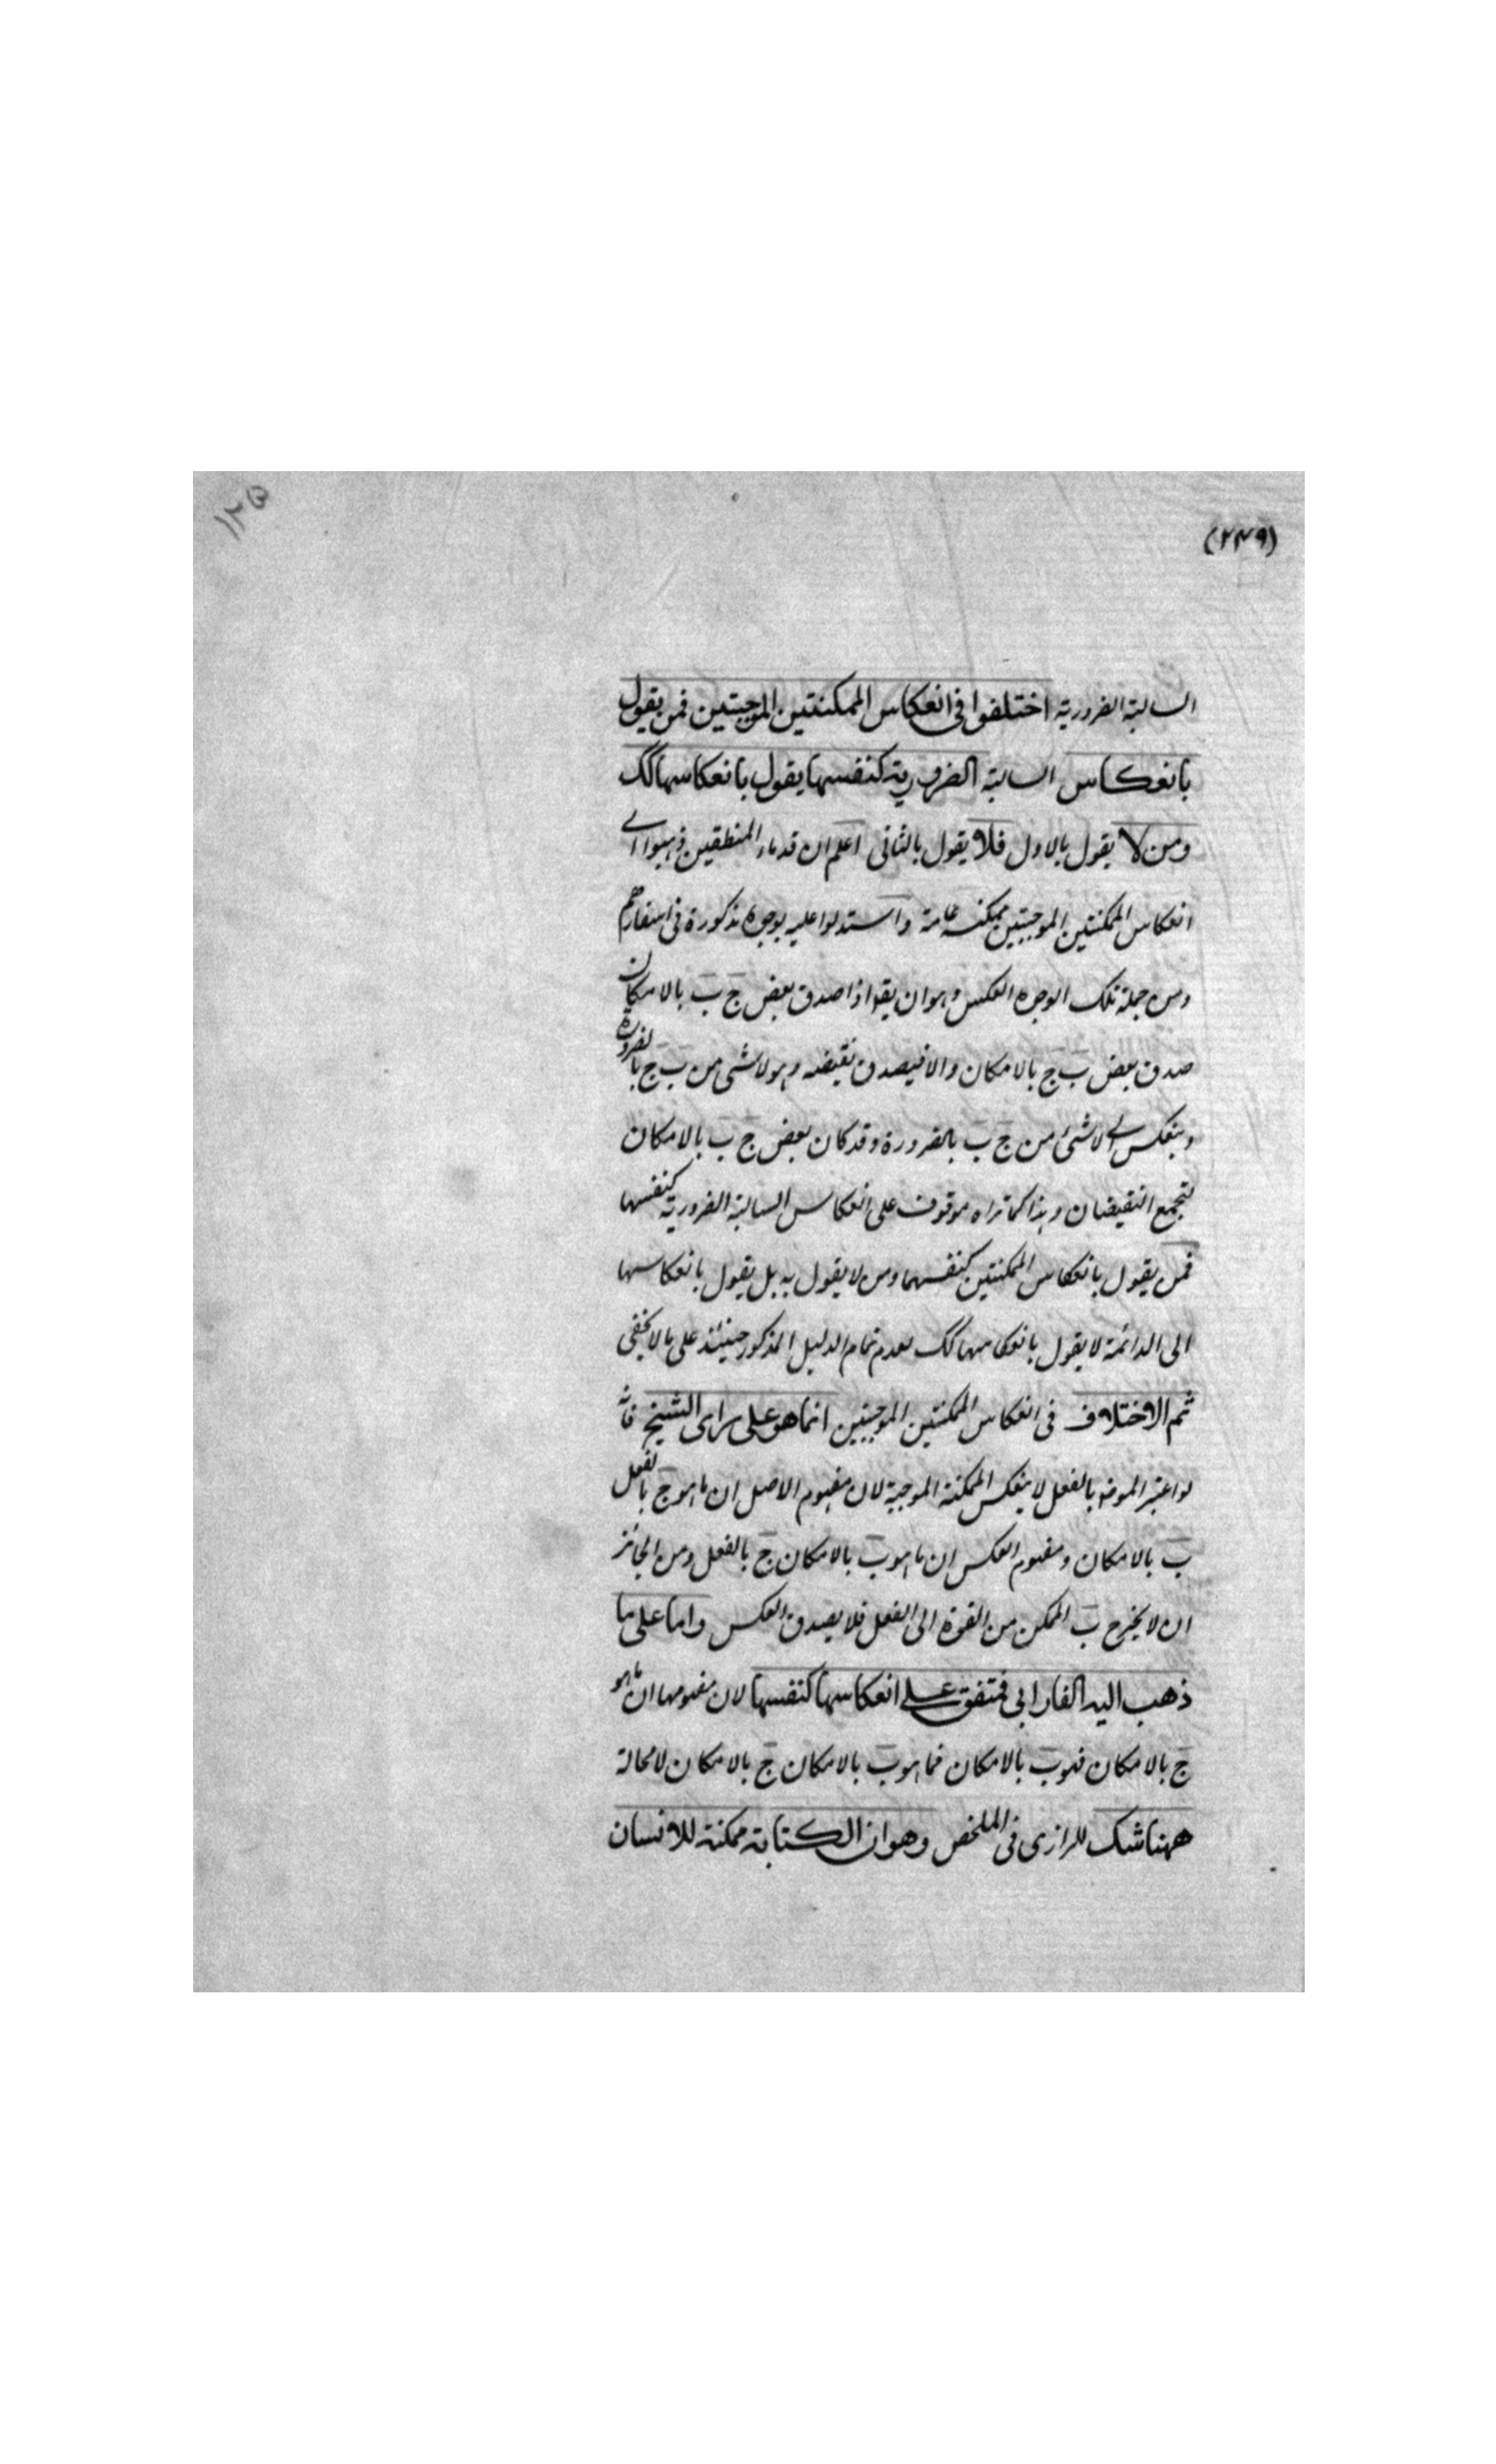 (٢٤٩)
١٢٥
السالبة الضرورية اختلفوا في انعكاس الممكنتين الموجبتين فمن يقول
بانعكاس السالبة الضرورية كنفسها يقول بانعكاسها كك
ومن لا يقول بالاول فلا يقول بالثاني اعلم ان قدماء المنطقين ذهبوا الے
انعكاس الممكنتين الموجبتين ممكنه عامة واستدلوا عليه بوجوه مذكورة في اسفارهم
ومن جملة تلك الوجوه العكس وهو ان يقو اذا صدق بعض ج ب بالامكان
صدق بعض ب ج بالامكان والا فيصدق نقيضه وهو لا شئ من ب ج بالضرورة
وينعكس الے لا شئ من ج ب بالضرورة وقد كان بعض ج ب بالامكان
لتجمع النقيضان وهذا كما تراه موقوف على انعكاس السالبة الضرورية كنفسها
فمن يقول بانعكاس الممكنتين كنفسهما ومن لا يقول به بل يقول بانعكاسها
الى الدائمة لا يقول بانعكاسهما كك لعدم تمام الدليل المذكور حينئذ على ما لا يخفى
ثم الاختلاف في انعكاس الممكنتين الموجبتين انما هو على راى الشيخ فانه
لو اعتبر الموضو بالفعل لا ينعكس الممكنة الموجبة لان مفهوم الاصل ان ما هو ج بالفعل
ب بالامكان ومفهوم العكس ان ما هو ب بالامكان ج بالفعل ومن الجائز
ان لا يخرج ب الممكن من القوة الى الفعل فلا يصدق العكس واما على ما
ذهب اليه الفارابي فمتفق علے انعكاسها كنفسها لان مفهومها ان ما هو
ج بالامكان فهو ب بالامكان فما هو ب بالامكان ج بالامكان لا محالة
ههنا شك للرازى في الملخص وهو ان الكتابة ممكنة للانسان